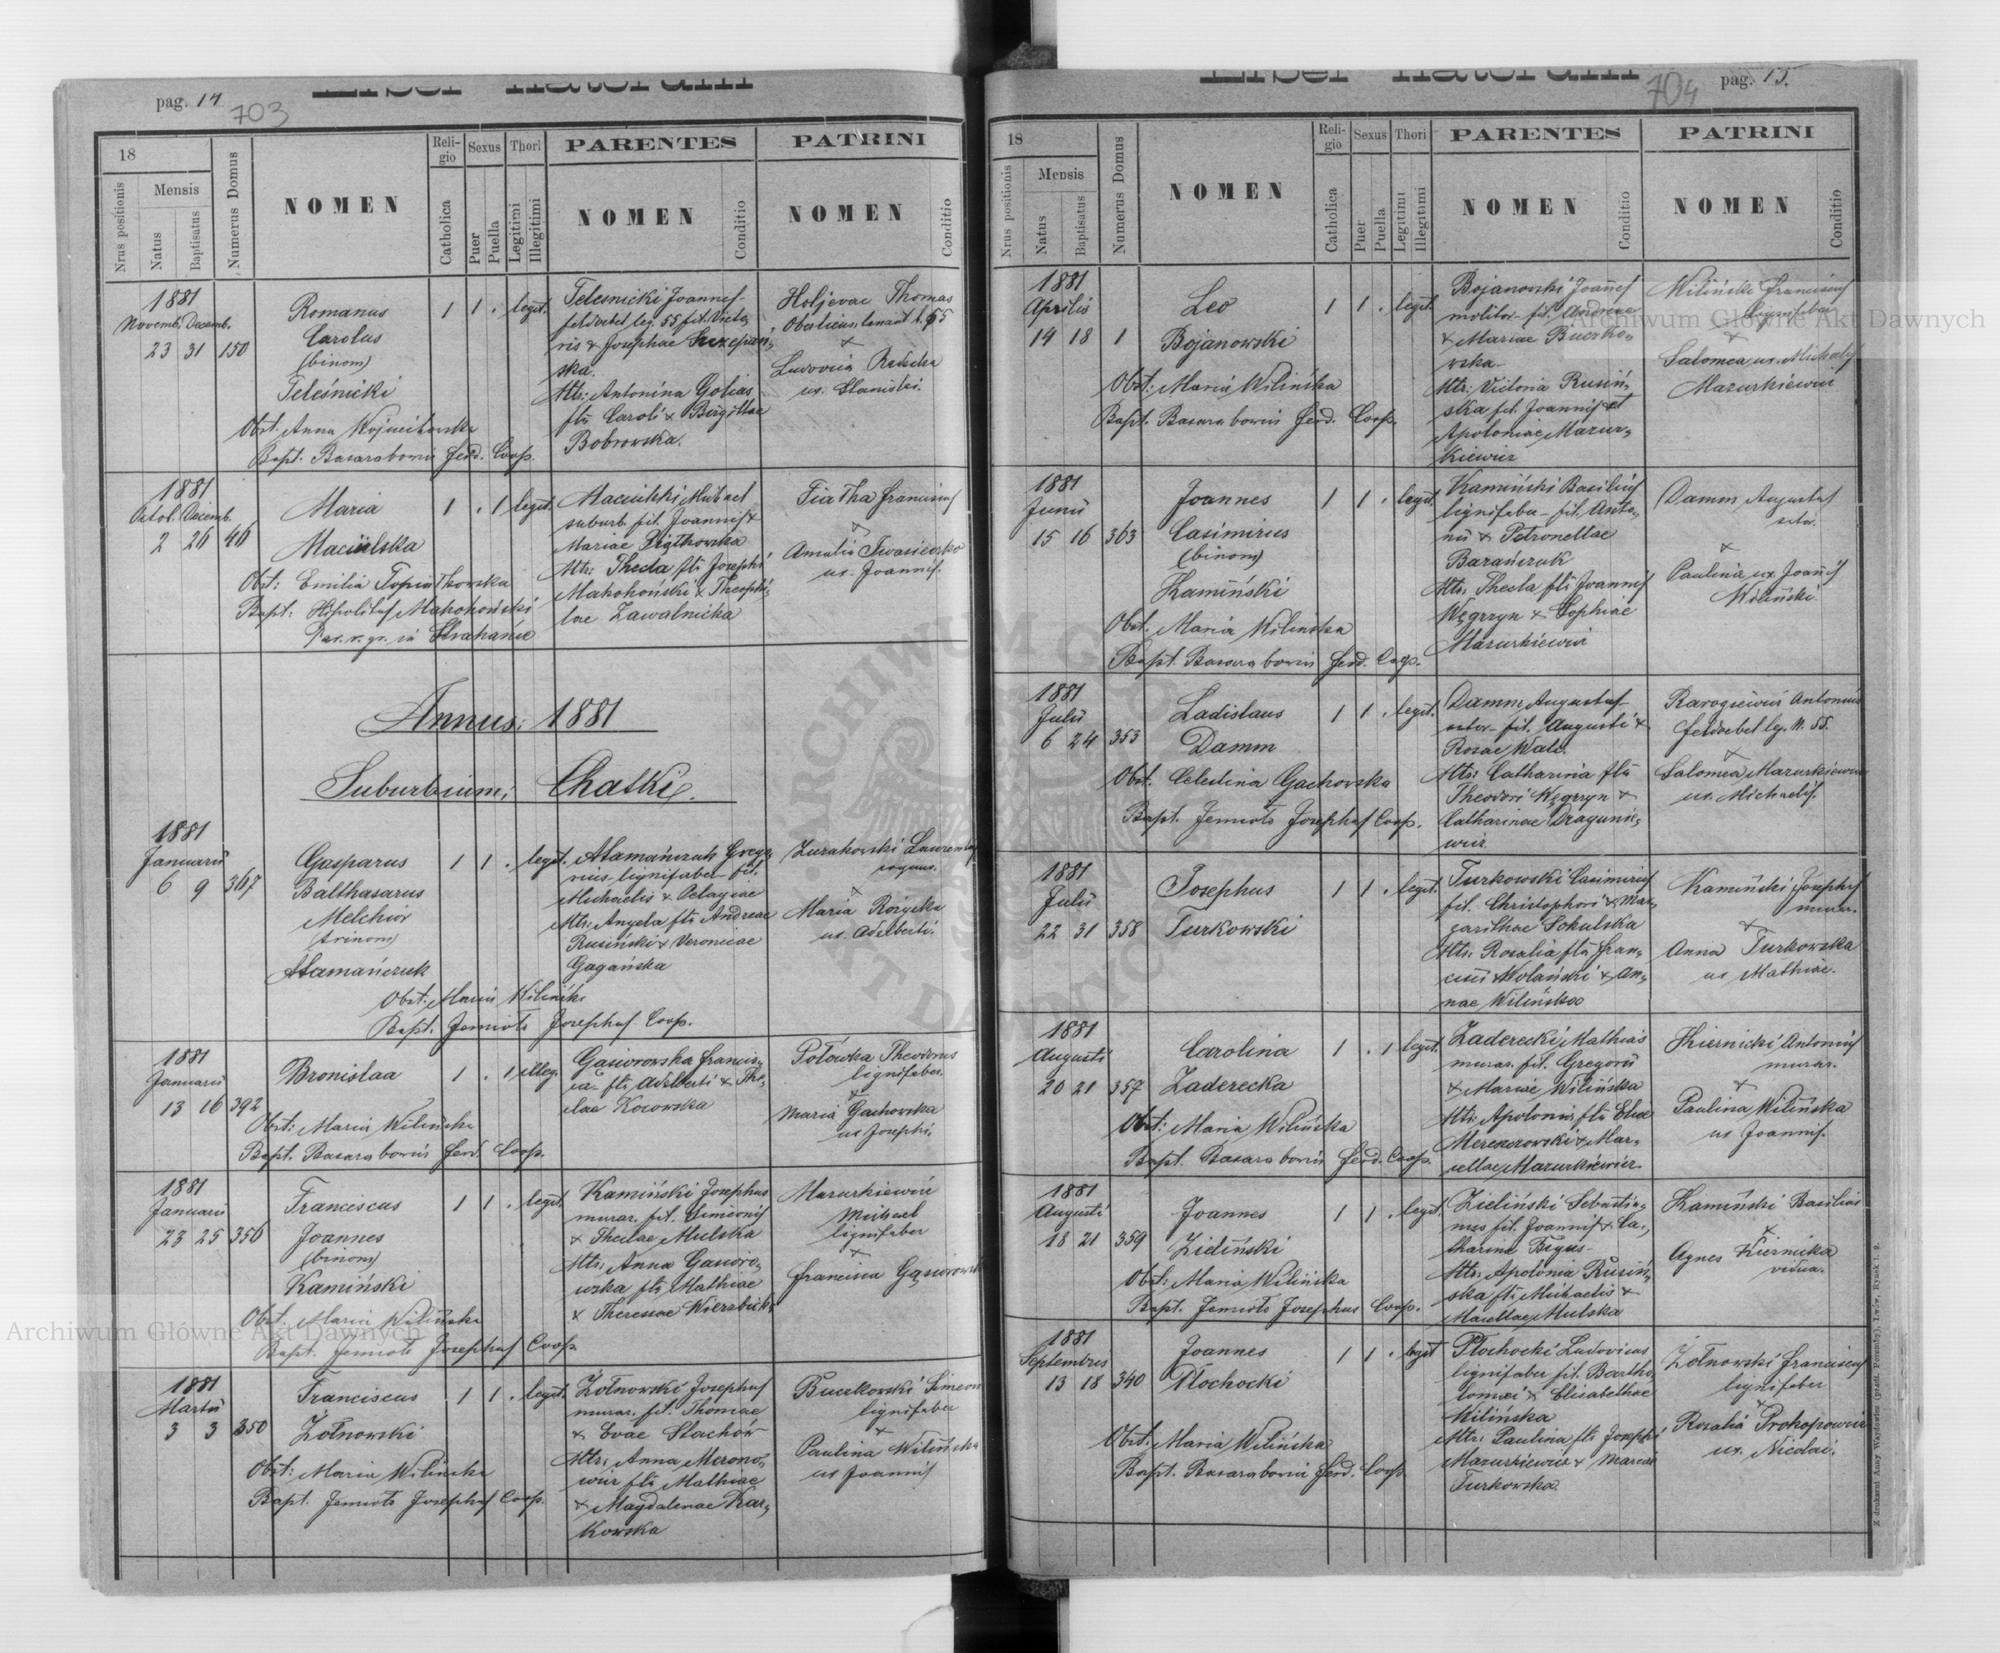 Liber natorum
pag. 14
703
18
Nrus positionis
Mensis
Natus
Baptisatus
Numerus Domus
NOMEN
Religio
Catholica
Sexus
Puer
Puella
Thori
Legitimi
Illegitimi
PARENTES
NOMEN
Conditio
PATRINI
NOMEN
Conditio
1881
Novemb. Decemb.
23 31 150
Romanus
Carolus
(binom)
Teleśnicki
Obst. Anna
Bapt. Basarabowicz Ferd. Coop.
1 1 . legit.
Telesnicki Joannes
feldvebel leg. 55 fil. Victo-
ris & Josephae Szczepań-
ska.
Mtr: Antonina Golias
fta Caroli & Birgittae
Bobrowska.
Holjevac Thomas
Oberlieutenant l. 55
x
Ludovica
ux. Stanislai.
1881
Octob. Decemb.
2 26 46
Maria
Macielska
Obst: Emilia
Bapt: Hipolitus Mahohoński
Par. r. gr. in
1 . 1 legit.
Macielski Michael
suburb. fil. Joannis &
Mariae
Mtr: Thecla fta Josephi
Mahohoński & Theophi-
lae Zawalnicka
Franciscus
x
Amalia
ux. Joannis.
Annus: 1881
Suburbium: Chatki.
1881
Januarii
6 9 367
Gasparus
Balthasarus
Melchior
(trinom)
Atamańczuk
Obst: Maria Wilińska
Bapt. Jemioło Josephus Coop.
1 1 . legit.
Atamańczuk Grego-
rius lignifaber fil.
Michaelis & Pelagiae
Mtr: Angela fta Andreae
Rusiński & Veronicae
Gagańska
Żurakowski Laurentius
x
Maria Rożycka
ux. Adalberti.
1881
Januarii
13 16 392
Bronislaa
Obst: Maria Wilińska
Bapt. Basarabowicz Ferd. Coop.
1 . 1 illeg.
Gąsiorowska Francis-
ca fta Adalberti & The-
clae Kocowska
Połowka Theodorus
lignifaber.
x
Maria Gachowska
ux Josephi.
1881
Januarii
23 25 356
Franciscus
Joannes
(binom)
Kamiński
Obst. Maria Wilińska
Bapt. Jemioło Josephus Coop.
1 1 . legit.
Kamiński Josephus
murar. fil. Simeonis
& Theclae Mulska
Mtr: Anna Gąsioro-
wska fta Mathiae
& Theresiae Wierzbicka
Mazurkiewicz
Michael
lignifaber
x
Francisca Gąsiorowska
1881
Martii
3 3 350
Franciscus
Żołnowski
Obst: Maria Wilińska
Bapt. Jemioło Josephus Coop.
1 1 . legit.
Żołnowski Josephus
murar. fil. Thomae
& Evae Stachów
Mtr: Anna Merono-
wicz fta Mathiae
& Magdalenae Kar-
kowska
Buczkowski Simeon
lignifaber
x
Paulina Wilińska
ux Joannis
Liber natorum
704
pag. 15.
18
Nrus positionis
Mensis
Natus
Baptisatus
Numerus Domus
NOMEN
Religio
Catholica
Sexus
Puer
Puella
Thori
Legitimi
Illegitimi
PARENTES
NOMEN
Conditio
PATRINI
NOMEN
Conditio
1881
Aprilis
14 18 1
Leo
Bojanowski
Obst: Maria Wilińska
Bapt. Basarabowicz Ferd. Coop.
1 1 . legit.
Bojanowski Joannes
molitor fil. Andreae
& Mariae Buczko-
wska
Mtr: Victoria Rusiń-
ska fil. Joannis et
Apoloniae Mazur-
kiewicz
Wiliński Franciscus
lignifaber
x
Salomea ux. Michaelis
Mazurkiewicz
1881
Junii
15 16 363
Joannes
Casimirus
(binom)
Kamiński
Obst. Maria Wilinska
Bapt. Basarabowicz Ferd. Coop.
1 1 . legit.
Kamiński Basilius
lignifaber fil. Anto-
nii & Petronellae
Barańczuk
Mtr: Thecla fta Joannis
Węgrzyn & Sophiae
Mazurkiewicz
Damm Augustus
x
Paulina ux Joannis
Wiliński.
1881
Julii
6 24 353
Ladislaus
Damm
Obst. Celestina Gachowska
Bapt. Jemioło Josephus Coop.
1 1 . legit.
Damm Augustus
fil. Augusti &
Rosae Walc.
Mtr: Catharina fta
Theodori Węgrzyn &
Catharinae Dragunie-
wicz
Antonius
feldvebel leg. N. 55.
x
Salomea Mazurkiewicz
ux. Michaelis.
1881
Julii
22 31 358
Josephus
Turkowski
1 1 . legit.
Turkowski Casimirus
fil. Christophori & Mar-
garithae Sokulska
Mtr: Rosalia fta Fran-
cisci Wolański & An-
nae Wilińska
Kamiński Josephus
murar.
x
Anna Turkowska
ux Mathiae.
1881
Augusti
20 21 357
Carolina
Zaderecka
Obst: Maria Wilińska
Bapt. Basarabowicz Ferd. Coop.
1 . 1 legit.
Zaderecki Mathias
murar. fil. Gregorii
& Mariae Wilińska
Mtr: Apolonia fta Eliae
& Mar-
cellae Mazurkiewicz.
Kiernicki Antonius
murar.
x
Paulina Wilińska
ux Joannis.
1881
Augusti
18 21 359
Joannes
Zieliński
Obst: Maria Wilińska
Bapt. Jemioło Josephus Coop.
1 1 . legit.
Zieliński Sebastia-
nus fil. Joannis & Ca-
tharina
Mtr: Apolonia Rusiń-
ska fta Michaelis &
Marellae Mulska
Kamiński Basilius
x
Agnes Kiernicka
vidua.
1881
Septembris
13 18 340
Joannes
Płochocki
Obst. Maria Wilińska
Bapt. Basarabowicz Ferd. Coop.
1 1 . legit
Płochocki Ludovicus
lignifaber fil. Bartho-
lomaei & Elisabethae
Wilińska
Mtr: Paulina fta Josephi
Mazurkiewicz & Mariae
Turkowska.
Żołnowski Franciscus
lignifaber
x
Rosalia Prokopowicz
ux. Nicolai.
Archiwum Główne Akt Dawnych
Archiwum Główne Akt Dawnych
Z drukarni Anny Wajdowicz (przedt. Poremby), Lwów, Rynek l. 9.